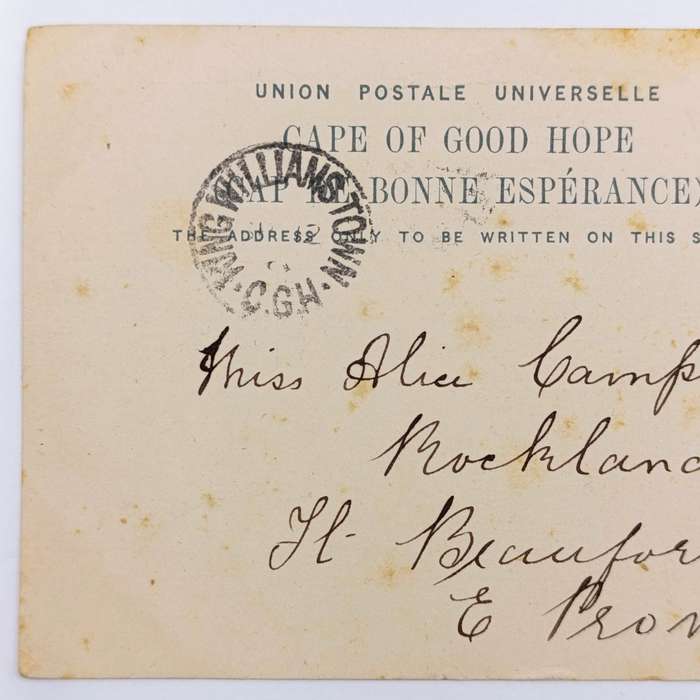 UNION POSTALE UNIVERSELLE
CAPE OF GOOD HOPE
(CAP DE BONNE ESPÉRANCE)
THE ADDRESS ONLY TO BE WRITTEN ON THIS S
KING WILLIAMS TOWN
C.G.H
Miss Alice Camp
Rockland
Ft Beaufor
E Prov